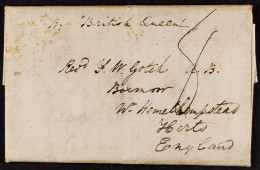 Pr "British Queen"
Revd F. W. Gotch A. B.
Boxmoor
Nr Hemel Hempstead
Herts
England
8